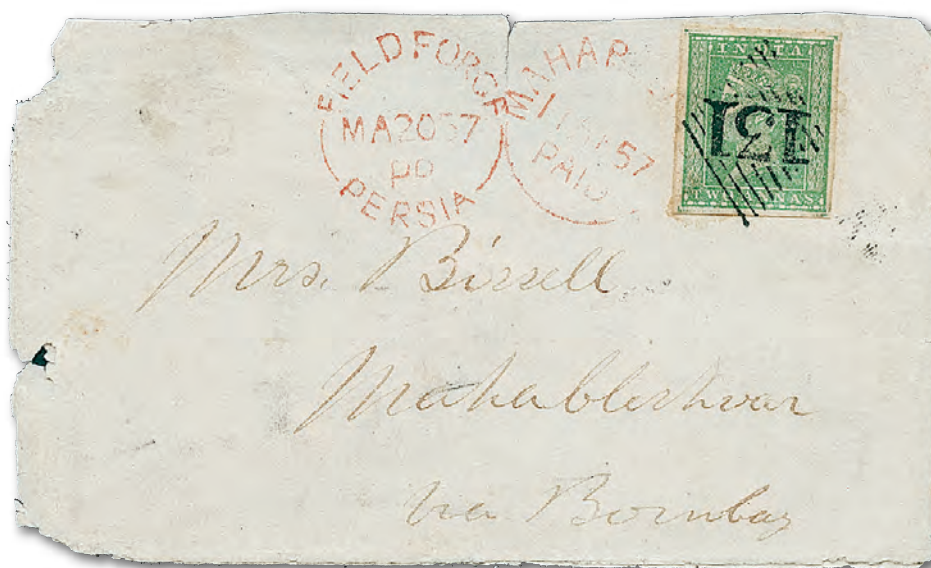 FIELD FORCE
MA 20 57
PD
PERSIA
MAHAB
57
PAID
INDIA
131
TWO ANNAS
Mrs. Bissell
Mahableshwar
via Bombay